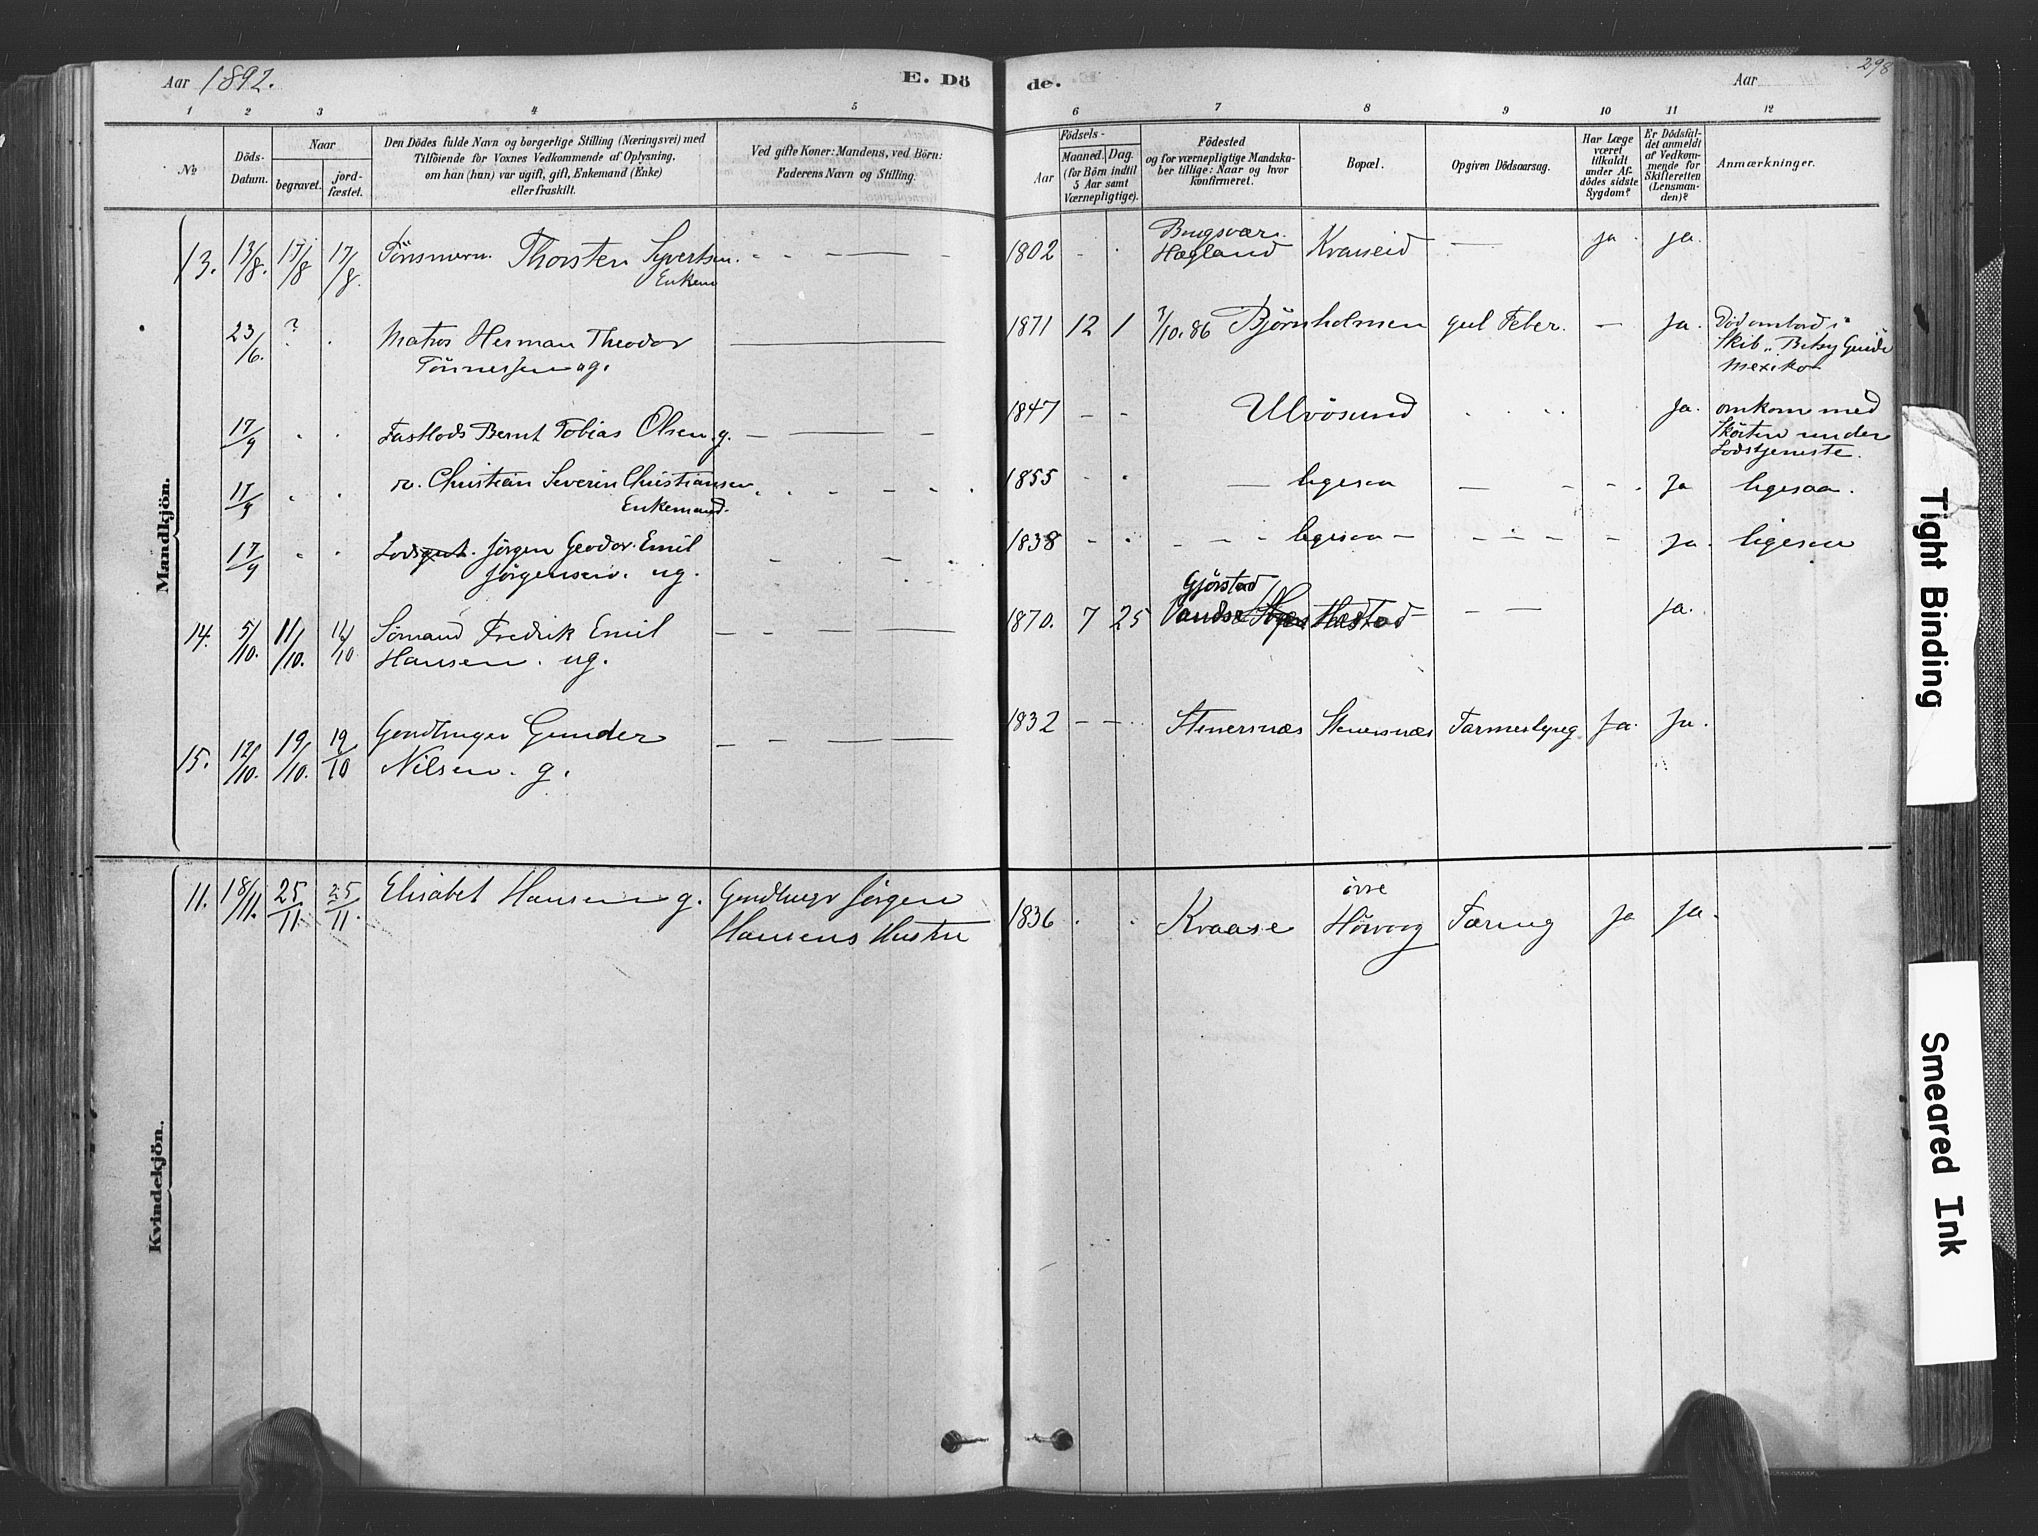 Aar 1892.
E. Dö
de.
Aar
298
1 2 3 4 5 6 7 8 9 10 11 12
No
Döds-
Datum.
Naar
begravet.
jord-
fæstet.
Den Dödes fulde Navn og borgerlige Stilling (Næringsvei) med
Tilföiende for Voxnes Vedkommende af Oplysning,
om han (hun) var ugift, gift, Enkemand (Enke)
eller fraskilt.
Ved gifte Koner: Mandens, ved Börn:
Faderens Navn og Stilling.
Födsels-
Aar
Maaned.
Dag.
(for Börn indtil
5 Aar samt
Værnepligtige).
Födested
og for værnepligtige Mandska-
ber tillige: Naar og hvor
konfirmeret.
Bopæl.
Opgiven Dödsaarsag.
Har Læge
været
tilkaldt
under Af-
dödes sidste
Sygdom?
Er Dödsfal-
det anmeldt
af Vedkom-
mende for
Skifteretten
(Lensman-
den)?
Anmærkninger.
Mandkjön.
13. 13/8. 17/8 17/8. Thorsten Syvertsen.
Enkem
1802 Hægland Kvaseid — ja. ja.
23/6. ? Matros Herman Theodor
Tönnessen ug.
1871 12 1 /10.86 Björnholmen gul Feber. — ja. Död ombord i
Skib "Betsy Gunde
Mexiko
17/9 Fastlods Bernt Tobias Olsen. g.
1847 — - Ulvösund ja. omkom med
Sköiten under
Lodstjeneste.
17/9 Christian Severin Christiansen
Enkemand.
1855 — ligesaa — ja ligesaa.
17/9 Jörgen Geodor Emil
Jörgensen. ug.
1838 ligesaa — ja. ligesaa
14. 5/10. 11/10. 11/10 Sömand Fredrik Emil
Hansen. ug.
1870. 7 25 Gjörstad
Hæstad — — ja.
15. 12/10. 19/10. 19/10 Gunder
Nilsen. g.
1832 — — Stenersnæs Stenersnæs ja. ja.
Kvindekjön.
11. 18/11. 25/11. 25/11. Elisabet Hansen g. Jörgen
Hansens Hustru
1836 Kraase Höivaag Tæring ja ja.
Tight Binding
Smeared Ink